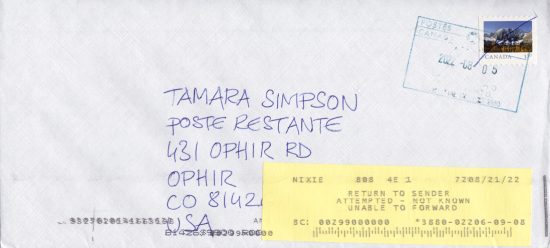 POSTES
CANADA
2022-08-05
CANADA
TAMARA SIMPSON
POSTE RESTANTE
431 OPHIR RD
OPHIR
CO 8142
USA
NIXIE 808 4E 1 7208/21/22
RETURN TO SENDER
ATTEMPTED - NOT KNOWN
UNABLE TO FORWARD
BC: 00299000000 *3880-02206-09-08